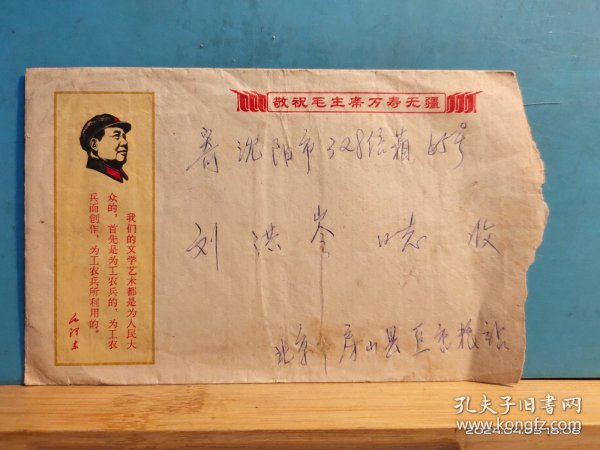 敬祝毛主席万寿无疆
我们的文学艺术都是为人民大
众的，首先是为工农兵的，为工农
兵而创作，为工农兵所利用的。
毛泽东
寄沈阳市328信箱65号
刘洪崟同志收
北京房山县
粮站
孔夫子旧书网
www.kongfz.com
2024.04.03 18:08